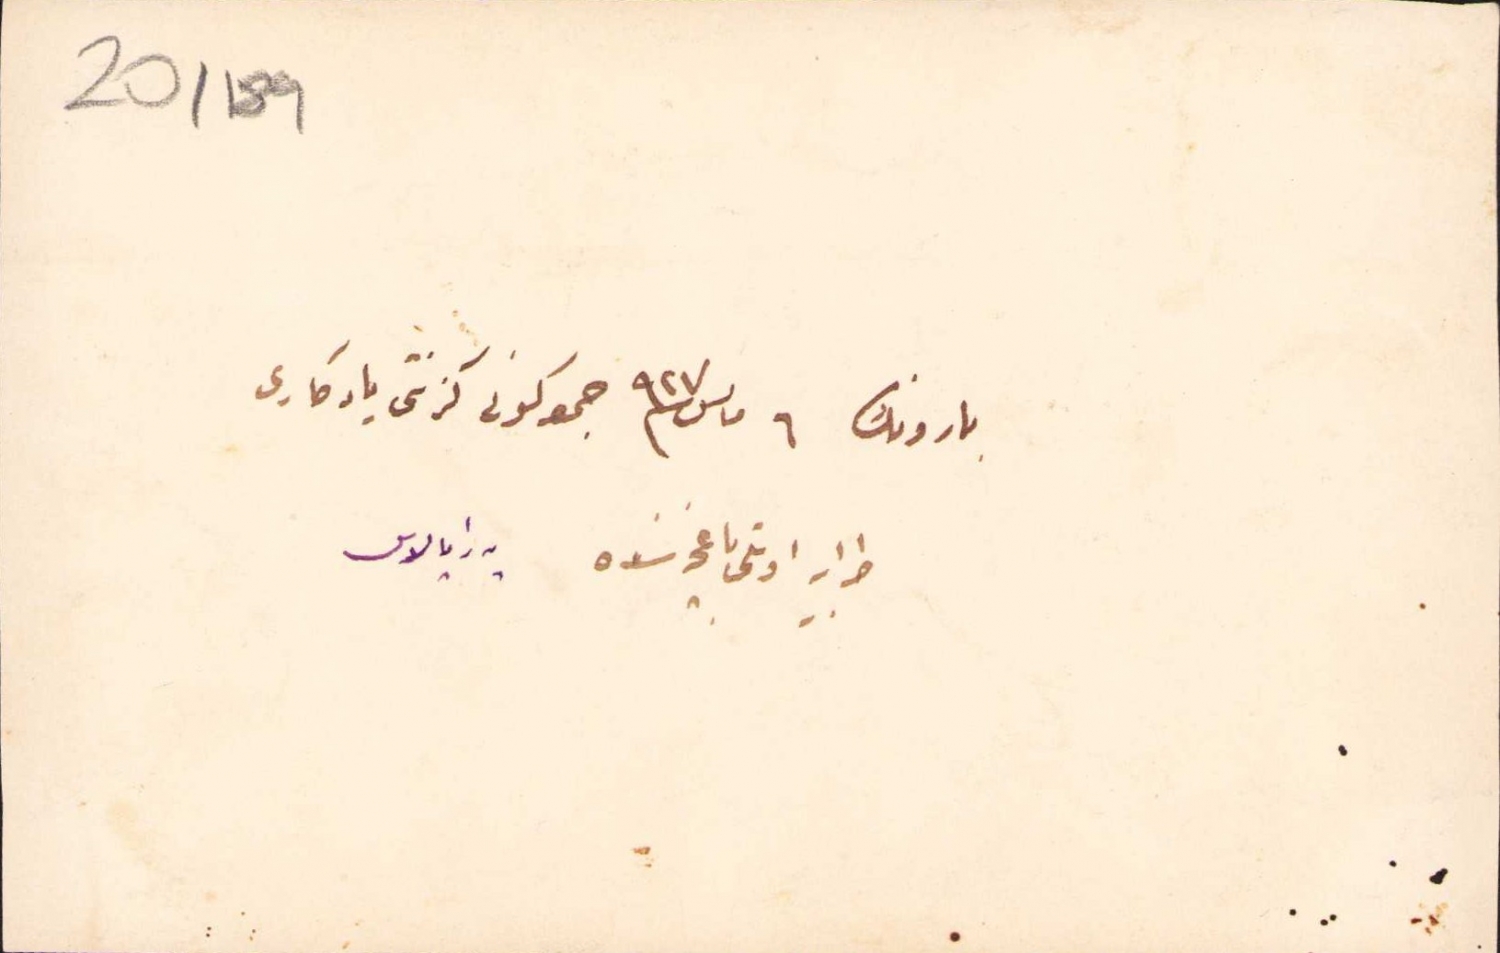 20/159
بارونك ٦ مايس ٩٢٧ جمعه كونی كزنتی يادكاری
طرابيه اوتلی باغچه‌سنده پەراپالاس